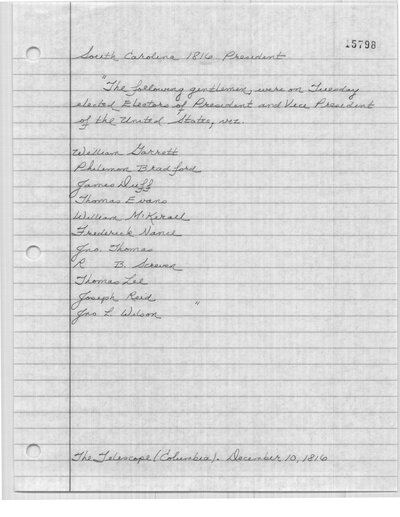 15798
South Carolina 1816 President
"The following gentlemen, were on Tuesday
elected Electors of President and Vice President
of the United States, viz.
William Garrett
Philemon Bradford
James Duff
Thomas Evans
William McKerall
Frederick Nance
Jno. Thomas
R. B. Screven
Thomas Lee
Joseph Reid "
Jno L. Wilson
The Telescope (Columbia). December 10, 1816